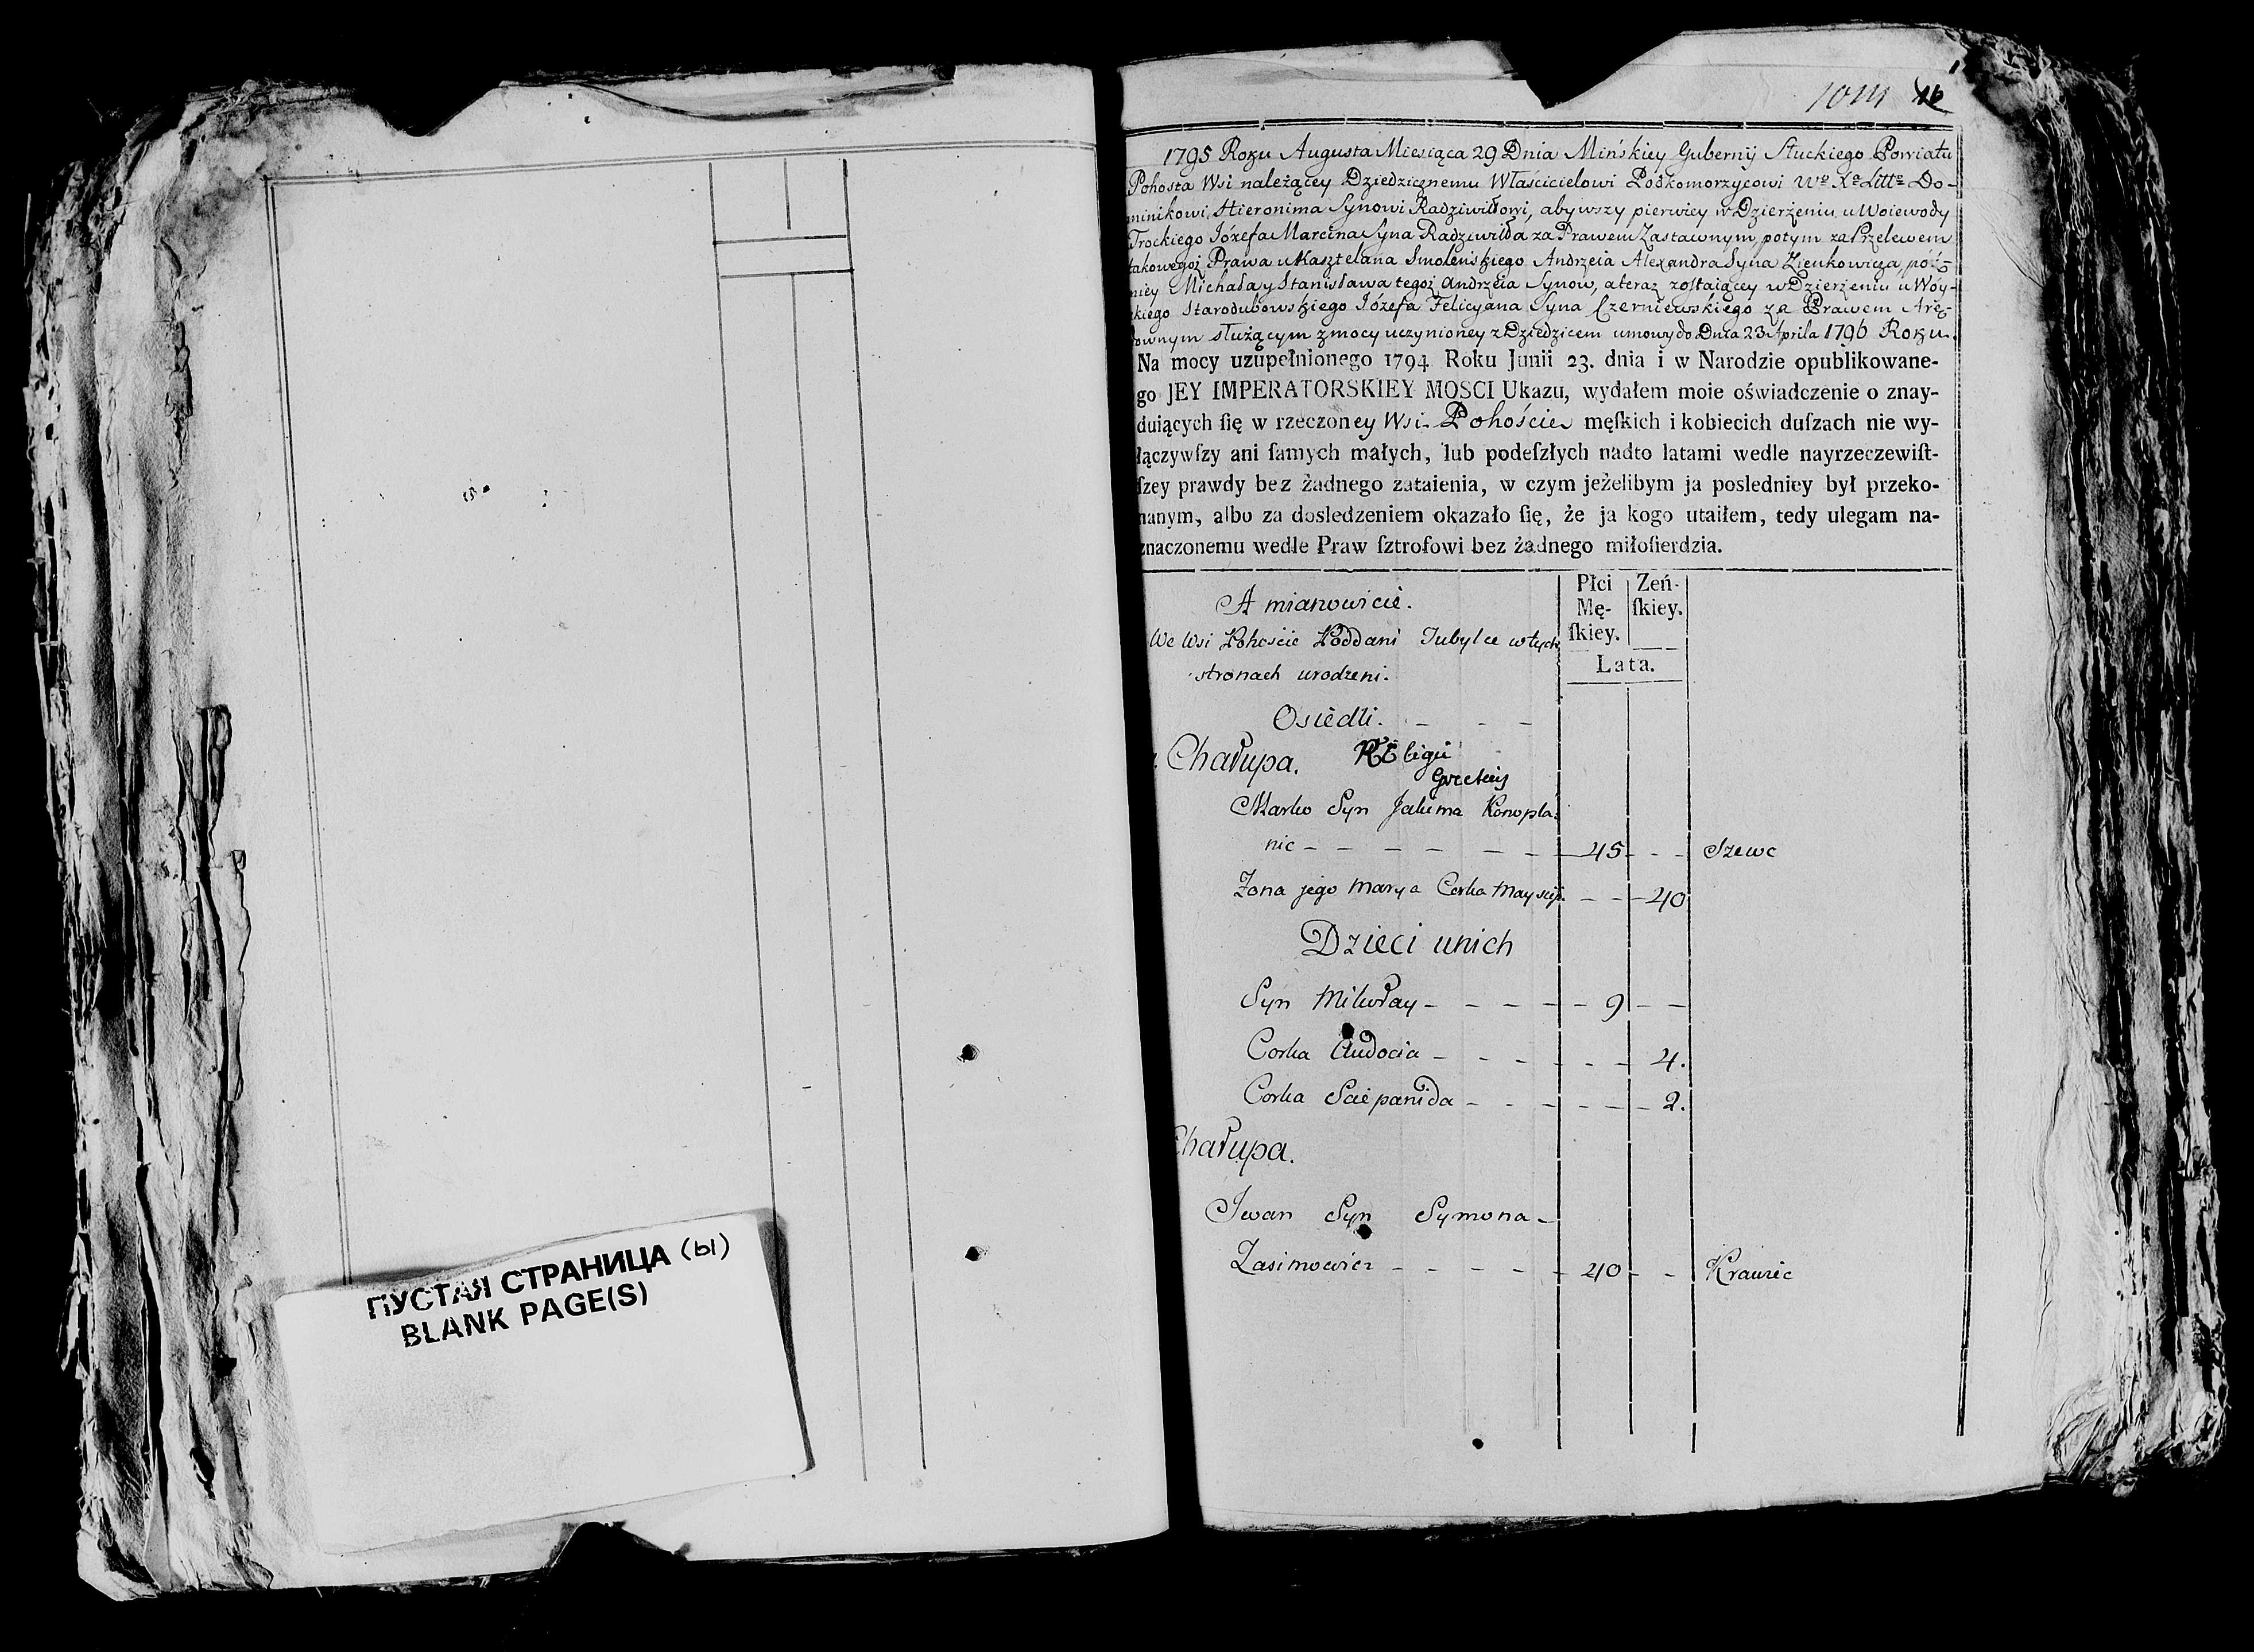 ПУСТАЯ СТРАНИЦА (ы)
BLANK PAGE(S)
1011 16
1795 Roku Augusta Miesiąca 29 Dnia Mińskiey Gubernij Słuckiego Powiatu
Pohosta Wsi należącey Dziedzicznemu Właścicielowi Podkomorzycowi Wo Xo Litto Do-
minikowi Hieronima Synowi Radziwiłłowi, a bywszy pierwiey w Dzierżeniu u Woiewody
Trockiego Józefa Marcina Syna Radziwiłła za Prawem Zastawnym, potym za Przelewem
takowegoż Prawa u Kasztelana Smoleńskiego Andrzeia Alexandra Syna Zienkowicza, poź-
niey Michała y Stanisława tegoż Andrzeia Synow, a teraz zostaiącey w Dzierżeniu u Woy-
skiego Starodubowskiego Józefa Felicyana Syna Czerniewskiego za Prawem Aręn-
downym służącym z mocy uczynioney z Dziedzicem umowy do Dnia 23 Aprila 1796 Roku.
Na mocy uzupełnionego 1794 Roku Junii 23. dnia i w Narodzie opublikowane-
go JEY IMPERATORSKIEY MOSCI Ukazu, wydałem moie oświadczenie o znay-
duiących ſię w rzeczoney Wsi Pohoście męſkich i kobiecich duſzach nie wy-
łączywſzy ani ſamych małych, lub podeſzłych nadto latami wedle nayrzeczewiſt-
ſzey prawdy bez żadnego zataienia, w czym jeżelibym ja posledniey był przeko-
nanym, albo za dosledzeniem okazało ſię, że ja kogo utaiłem, tedy ulegam na-
znaczonemu wedle Praw ſztrofowi bez żadnego miłoſierdzia.
A mianowicie.
Płci Mę-ſkiey. Zeń-ſkiey.
We Wsi Pohoście Poddani Tubylce w tych
stronach urodzeni.
Lata.
Osiedli. - - -
Chałupa. Religii
Greckiey
Marko Syn Jakima Konopla-
nic - - - - - - 45 - - Szewc
Zona jego Marya Corka - - 40
Dzieci unich
Syn Mikołay - - - - 9 - -
Corka Audocia - - - - - 4.
Corka Sciepanida - - - - - 2.
Chałupa.
Iwan Syn Symona -
Zasimowicz - - - - - 40 - - Krawiec